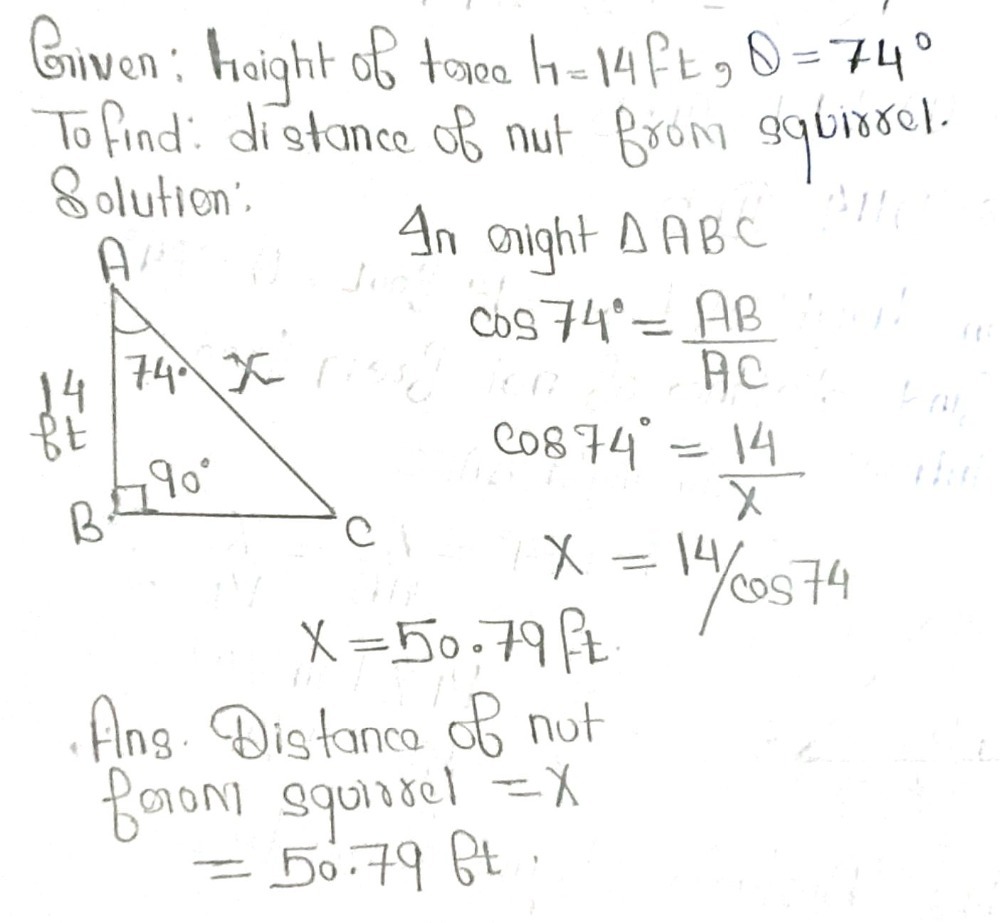 Given: height of tree h=14ft, θ=74°
To find: distance of nut from squirrel.
Solution:
In right Δ ABC
A
74°
x
14
ft
90°
B
C
cos 74° = AB/AC
cos 74° = 14/x
x = 14/cos74
x = 50.79 ft.
Ans. Distance of nut
from squirrel = x
= 50.79 ft.